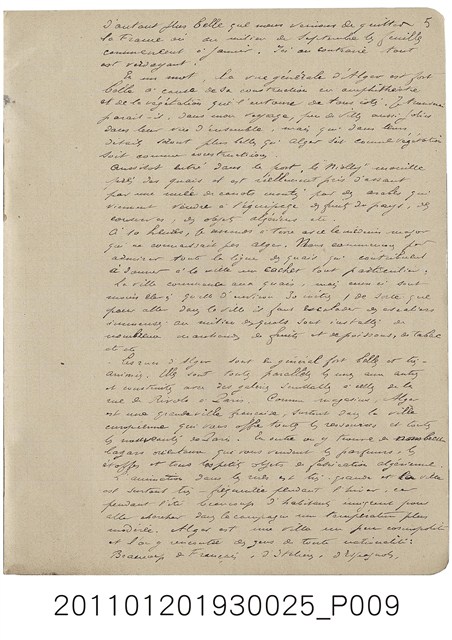 d'autant plus belle que nous venions de quitter 5
la France où au milieu de Septembre les feuilles
commencent à jaunir. Ici au contraire tout
est verdoyant.
En un mot, la vue générale d'Alger est fort
belle à cause de sa construction en amphithéatre
et de la végétation qui l'entoure de tous côtés.
dans mon voyage, peu de villes aussi jolies
dans leur vue d'ensemble, mais qui dans leurs
détails soient plus belles qu'Alger soit comme végétation
soit comme construction.
Aussitôt entré dans le port, le mouillé
près des quais et est réellement pris d'assaut
par une nuée de canots montés par des arabes qui
viennent vendre à l'équipage des fruits du pays, des
conserves, des objets algériens etc.
A 10 heures, je descends à terre avec le médecin major
qui ne connaissait pas Alger. Nous commençons par
admirer toute la ligne des quais qui contribuent
à donner à la ville un cachet tout particulier.
La ville commence aux quais, mais ceux ci sont
moins élevés qu'elle d'environ 30 mètres, de sorte que
pour aller dans la ville il faut escalader des escaliers
immenses au milieu desquels sont installés de
nombreux marchands de fruits et de poissons, de tabac
etc etc
Les rues d'Alger sont en général fort belles et très
animées. Elles sont toutes parallèles les unes aux autres
et construites avec des galeries semblables à celles de la
rue de Rivoli à Paris. Comme magasins, Alger
est une grande ville française, surtout dans la ville
européenne qui vous offre toutes les ressources et toutes
les de Paris. En outre on y trouve de nombreux
bazars où l'on vous vend les parfums, les
étoffes et tous les petits objets de fabrication algérienne.
L'animation dans les rues est très grande et la ville
est surtout très fréquentée pendant l'hiver, car
pendant l'été beaucoup d'habitants émigrent pour
aller chercher dans la campagne une température plus
modérée. Alger est une ville un peu cosmopolite
et l'on y rencontre des gens de toute nationalité:
Beaucoup de Français, d'Italiens, d'Espagnols,
201101201930025_P009